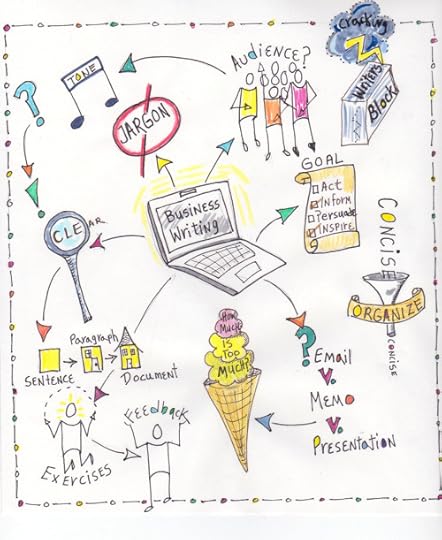 cracking
WRITERS
BLOCK
AUDIENCE?
TONE
JARGON
GOAL
Act
INform
Persuade
INSPIRE
Business
Writing
CLEAR
CONCISE
ORGANIZE
CONCISE
Paragraph
SENTENCE
DOCUMENT
How
Much
IS
Too
MUCH?
? Email
V.
MEMO
V.
PRESENTATION
Feedback
Exercises